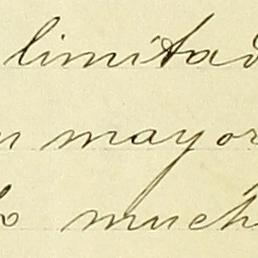 limitad
mayor
much